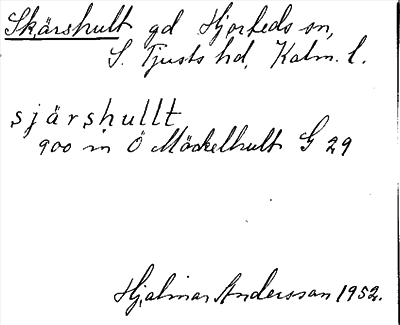 Skärshult gd Hjorteds sn,
S. Tjusts hd, Kalm. l.
sjärshullt
900 m Ö Möckelhult G 29
Hjalmar Andersson 1952.